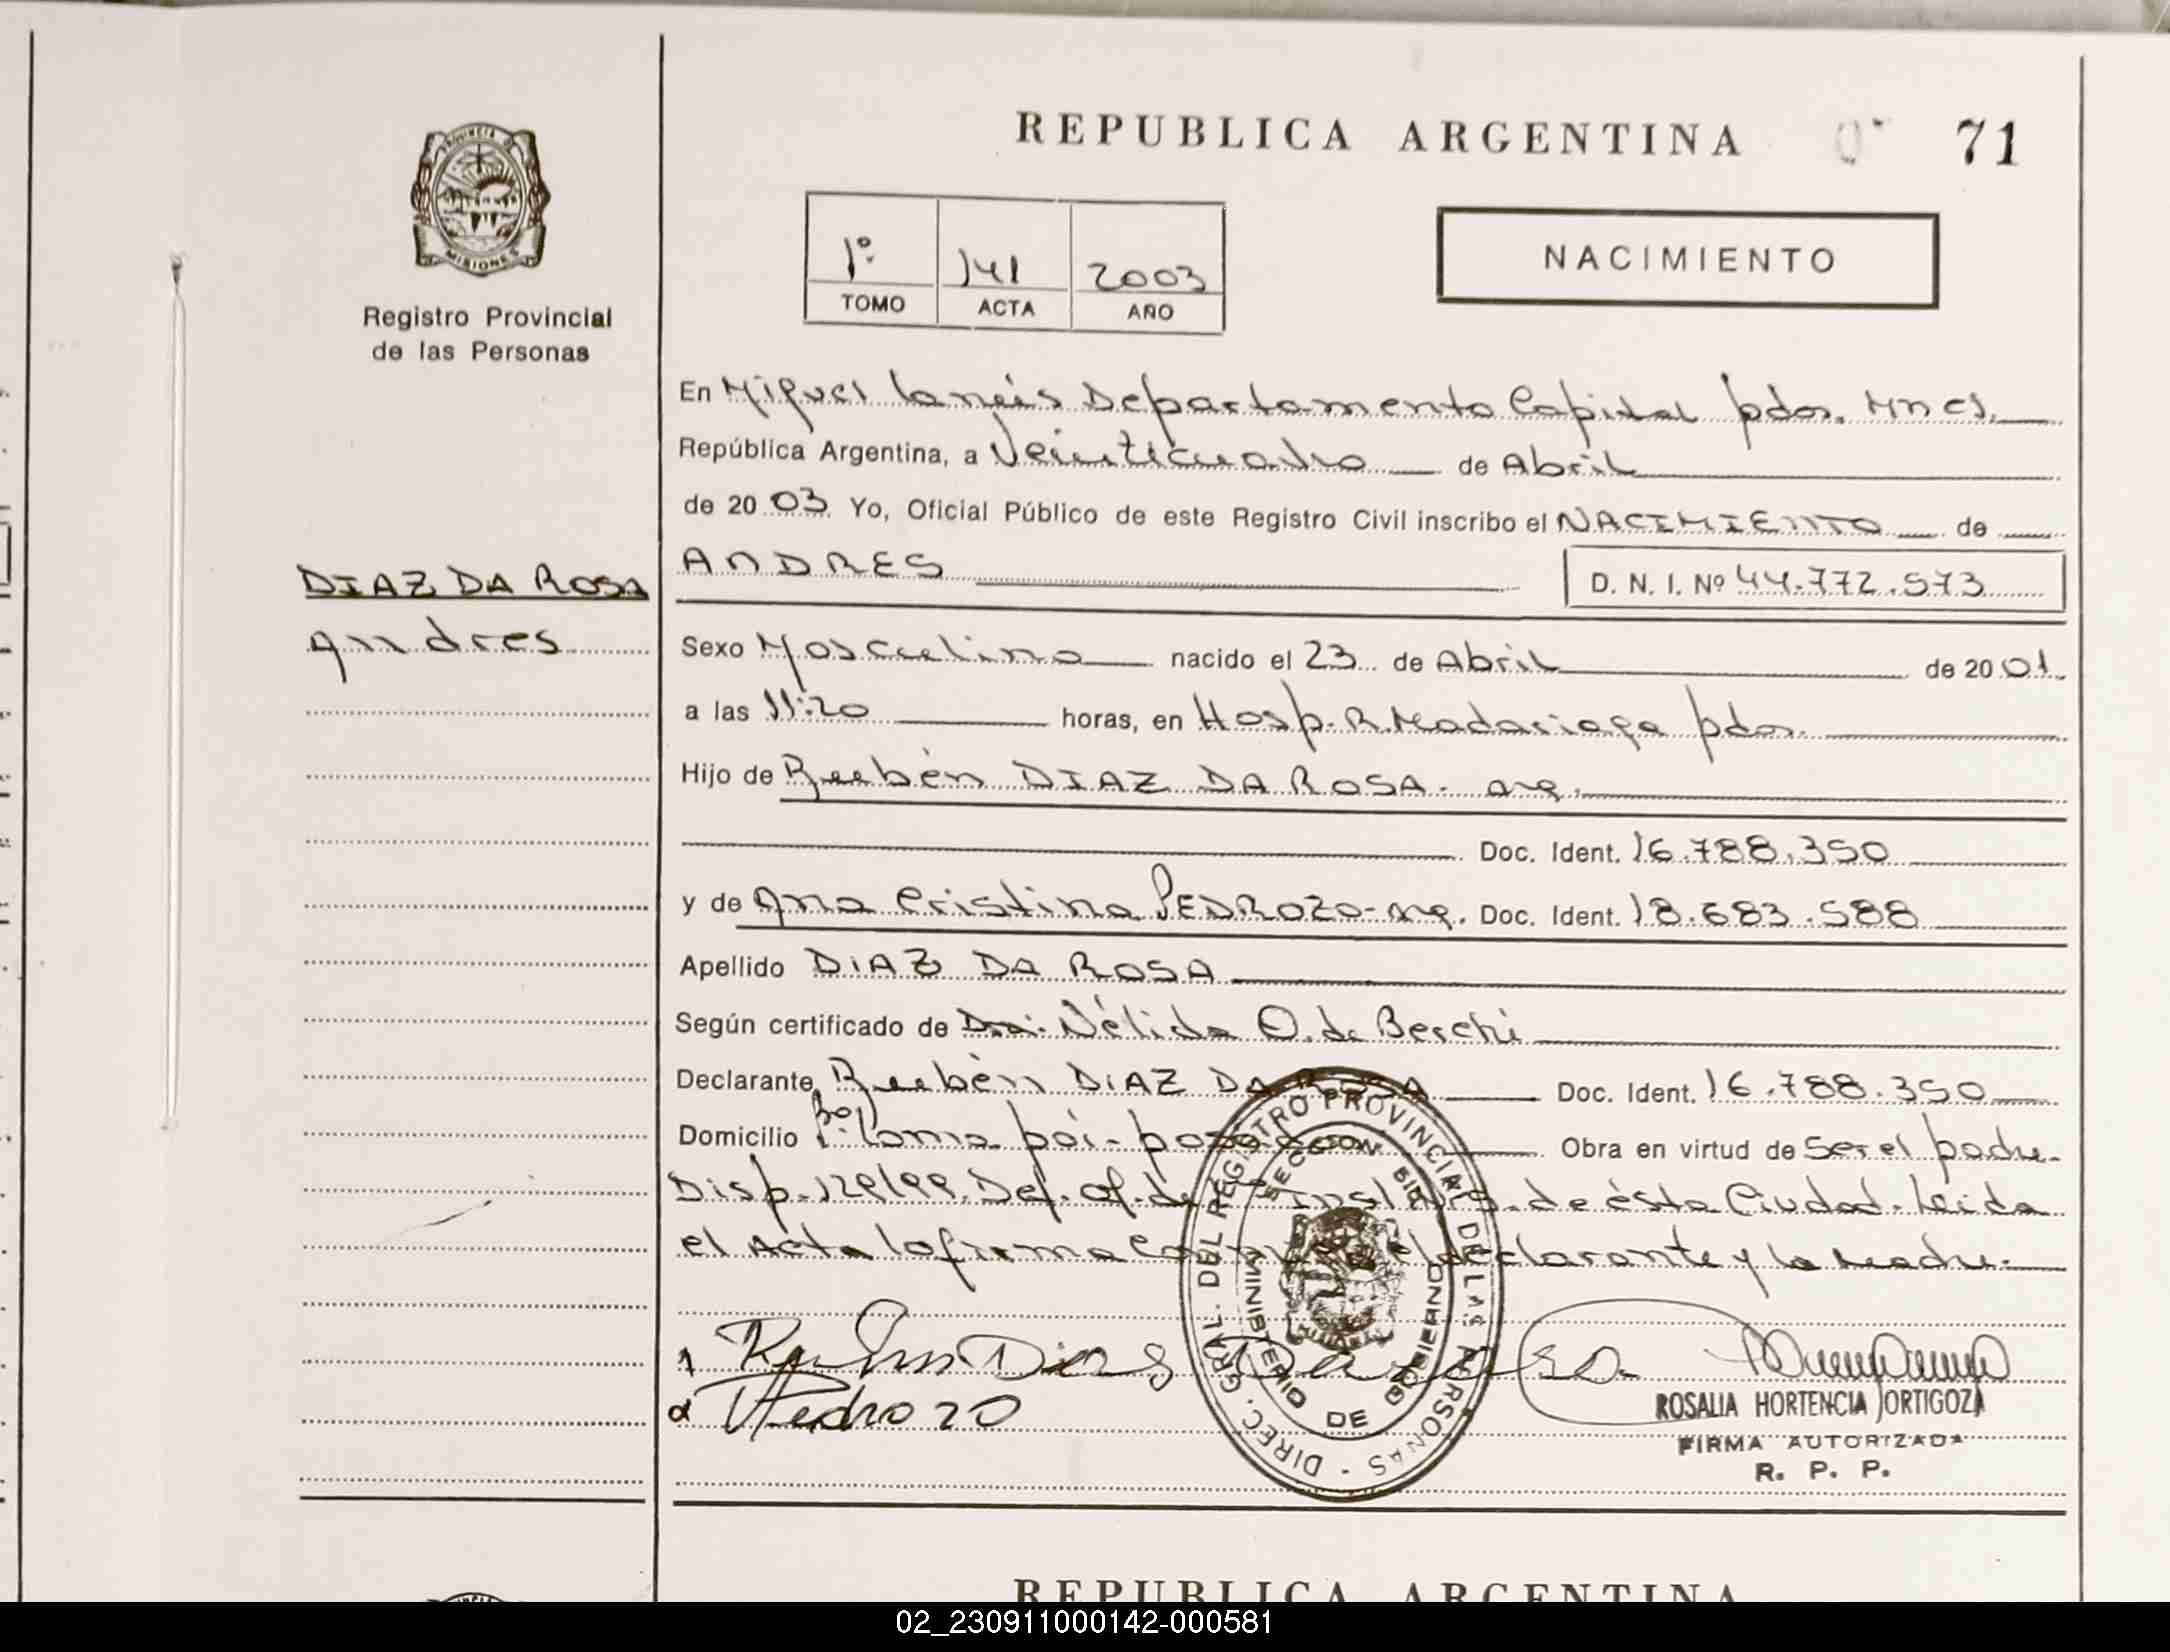 REPUBLICA ARGENTINA
71
PROVINCIA DE MISIONES
Registro Provincial
de las Personas
1º 141 2003
TOMO ACTA AÑO
NACIMIENTO
En Miguel Lanús Departamento Capital pdas. Mnes.
República Argentina, a Veinticuatro de Abril
de 2003 Yo, Oficial Público de este Registro Civil inscribo el NACIMIENTO de
ANDRES D. N. I. Nº 44.772.573
DIAZ DA ROSA
Andres
Sexo Masculino nacido el 23 de Abril de 2001
a las 11:20 horas, en Hosp. R. Madariaga pdas.
Hijo de Rubén DIAZ DA ROSA. arg.
Doc. Ident. 16.788.350
y de Ana Cristina PEDROZO - arg. Doc. Ident. 18.683.588
Apellido DIAZ DA ROSA
Según certificado de Dra. Nélida O. de Berchi
Declarante Rubén DIAZ DA ROSA Doc. Ident. 16.788.350
Domicilio Bº Loma poi - posadas Obra en virtud de ser el padre.
Disp. 129/99. Def. Of. de de ésta Ciudad. Leida
el Acta la firma el declarante y la madre.
1 Ruben Dias Da Rosa
a Pedrozo
DIREC. GRAL. DEL REGISTRO PROVINCIAL DE LAS PERSONAS
MINISTERIO DE GOBIERNO
SECCION
ROSALIA HORTENCIA ORTIGOZA
FIRMA AUTORIZADA
R. P. P.
REPUBLICA ARGENTINA
02_230911000142-000581